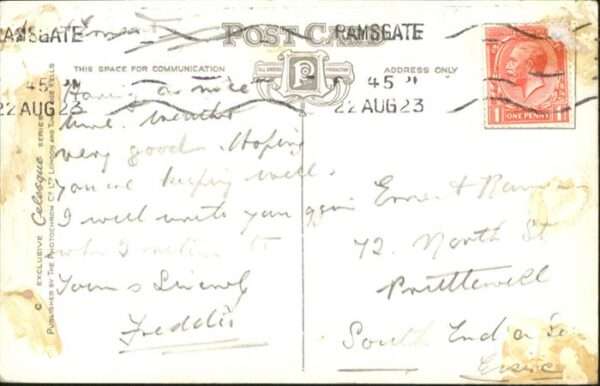 POST CARD
RAMSGATE
RAMSGATE
THIS SPACE FOR COMMUNICATION
ADDRESS ONLY
45
22 AUG 23
45
22 AUG 23
ONE PENNY
EXCLUSIVE Celesque SERIES
PUBLISHED BY THE PHOTOCHROM CO LTD LONDON AND TUNBRIDGE WELLS
a nice
time. weather
very good. Hoping
you are keeping well.
I will write you again
when I return to
Yours Sincerely
Freddie
Ernest
72. North St
Prittlewell
South End on Sea
Essex